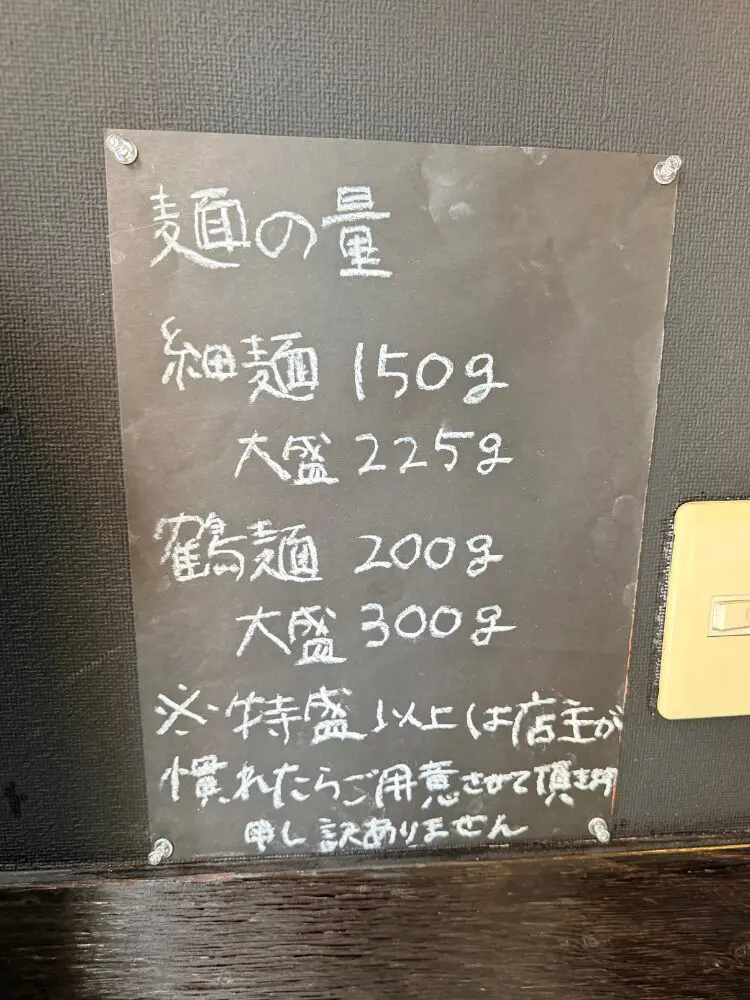 麺の量
細麺 150g
大盛 225g
鶴麺 200g
大盛 300g
※特盛以上は店主が
慣れたらご用意させて頂きます
申し訳ありません